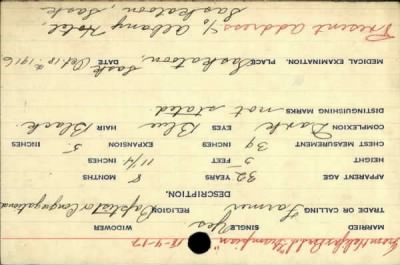 From Halifax 18-4-17
MARRIED SINGLE Yes WIDOWER
TRADE OR CALLING Farmer RELIGION Baptist or Congregational
DESCRIPTION.
APPARENT AGE 32 YEARS 8 MONTHS
HEIGHT 5 FEET 11 1/4 INCHES
CHEST MEASUREMENT 39 INCHES EXPANSION 5 INCHES
COMPLEXION Dark EYES Blue HAIR Black
DISTINGUISHING MARKS not stated
MEDICAL EXAMINATION. PLACE Saskatoon, Sask DATE Oct 12 1916
Present address c/o Albany Hotel,
Saskatoon, Sask